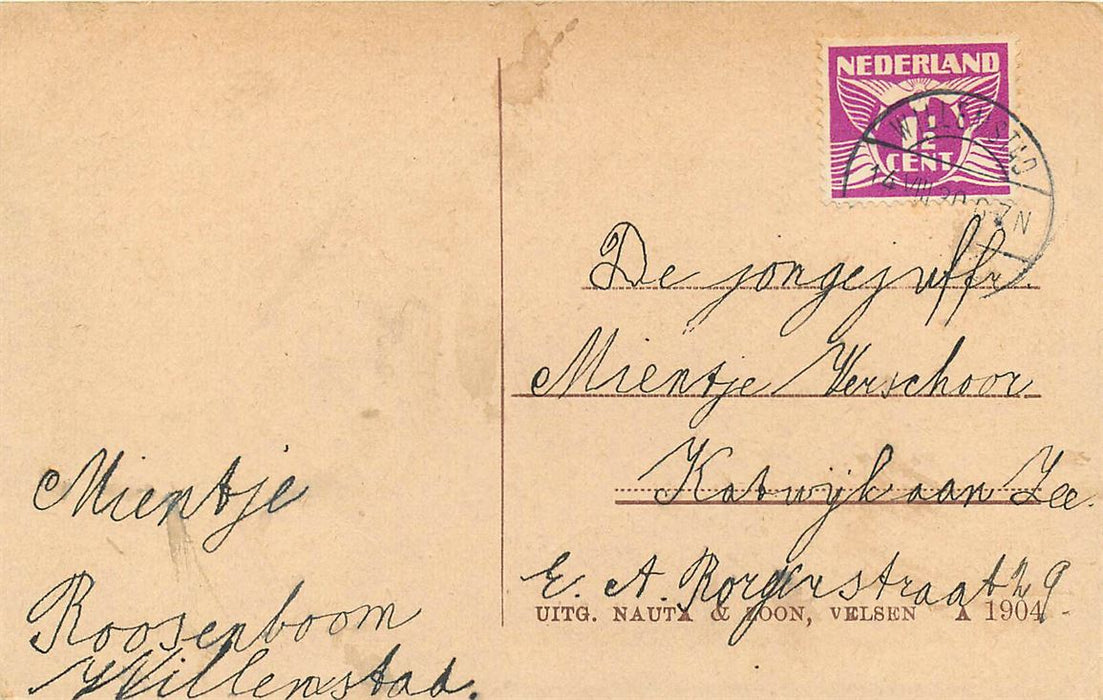 NEDERLAND
1½
CENT
WILLEMSTAD
14 VIII 30 6-7 N
De jongejuffr.
Mientje Verschoor
Katwijk aan Zee.
E. A. Borgerstraat 29
UITG. NAUTA & ZOON, VELSEN A 1904
Mientje
Roosenboom
Willemstad.